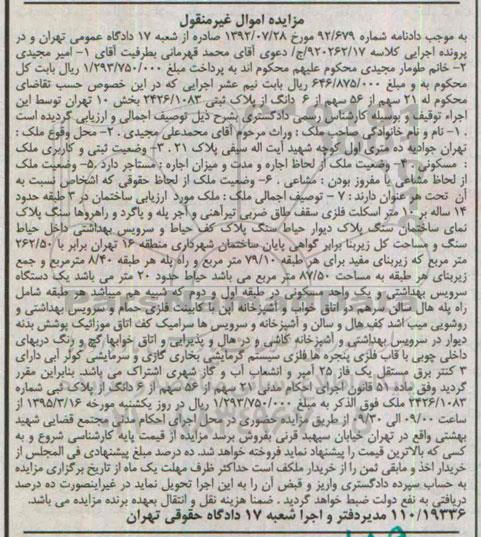 مزایده اموال غیرمنقول
به موجب دادنامه شماره ۹۲/۶۷۹ مورخ ۱۳۹۲/۰۷/۲۸ صادره از شعبه ۱۷ دادگاه عمومی تهران و در
پرونده اجرایی کلاسه ۹۲۰۲۶۲/۱۷/ج/ دعوی آقای محمد قهرمانی بطرفیت آقای ۱- امیر مجیدی
۲- خانم طومار مجیدی محکوم علیهم محکوم اند به پرداخت مبلغ ۱/۲۹۳/۷۵۰/۰۰۰ ریال بابت کل
محکوم به و مبلغ ۶۴۶/۸۷۵/۰۰۰ ریال بابت نیم عشر اجرایی که در این خصوص حسب تقاضای
محکوم له ۲۱ سهم از ۵۶ سهم از ۶ دانگ از پلاک ثبتی ۲۴۲۶/۱۰۸۳ بخش ۱۰ تهران توسط این
اجراء توقیف و بوسیله کارشناس رسمی دادگستری بشرح ذیل توصیف اجمالی و ارزیابی گردیده است
. ۱- نام و نام خانوادگی صاحب ملک : وراث مرحوم آقای محمدعلی مجیدی . ۲- محل وقوع ملک :
تهران جوادیه ده متری اول کوچه شهید آیت اله سیفی پلاک ۲۱ . ۳- وضعیت ثبتی و کاربری ملک
: مسکونی . ۴- وضعیت ملک از لحاظ اجاره و مدت و میزان اجاره : مستاجر دارد . ۵- وضعیت ملک
از لحاظ مشاعی یا مفروز بودن : مشاعی . ۶- وضعیت ملک از لحاظ حقوقی که اشخاص نسبت به
آن تحت هر عنوان دارند : ۷ - توصیف اجمالی ملک : ملک مورد ارزیابی ساختمان در ۳ طبقه حدود
۱۴ ساله بر ۱۰ متر اسکلت فلزی سقف طاق ضربی تیرآهنی و آجر پله و پاگرد و راهروها سنگ پلاک
نمای ساختمان سنگ پلاک دیوار حیاط سنگ پلاک کف حیاط و سرویس بهداشتی داخل حیاط
سنگ و مساحت کل زیربنا برابر گواهی پایان ساختمان شهرداری منطقه ۱۶ تهران برابر با ۲۶۲/۵۰
متر مربع که زیربنای مفید برای هر طبقه ۷۹/۱۰ متر مربع و راه پله هر طبقه ۸/۴۰ مترمربع و جمع
زیربنای هر طبقه به مساحت ۸۷/۵۰ متر مربع می باشد حیاط حدود ۲۰ متر می باشد یک دستگاه
سرویس بهداشتی و یک واحد مسکونی در طبقه اول و دوم که شبیه هم میباشند هر طبقه شامل
راه پله هال سالن سرهم دو اتاق خواب و آشپزخانه اپن با کابینت فلزی حمام و سرویس بهداشتی و
روشویی میب اشد کف هال و سالن و آشپزخانه و سرویس ها سرامیک کف اتاق موزائیک پوشش بدنه
دیوار در سرویس بهداشتی و آشپزخانه کاشی و در هال و پذیرایی و اتاق خوابها گچ و رنگ دربهای
داخلی چوبی با قاب فلزی پنجره ها فلزی سیستم گرمایشی بخاری گازی و سرمایشی کولر آبی دارای
۳ کنتر برق مستقل یک فاز ۲۵ آمپر و انشعاب آب و گاز شهری اشتراک می باشد. بنابراین مقرر
گردید وفق ماده ۵۱ قانون اجرای احکام مدنی ۲۱ سهم از ۵۶ سهم از ۶ دانگ از پلاک ثبتی شماره
۲۴۲۶/۱۰۸۳ ملک فوق الذکر به مبلغ ۱/۲۹۳/۷۵۰/۰۰۰ ریال در روز یکشنبه مورخه ۱۳۹۵/۳/۱۶ از
ساعت ۰۹/۰۰ الی ۰۹/۳۰ از طریق مزایده حضوری در محل اجرای احکام مدنی مجتمع قضایی شهید
بهشتی واقع در تهران خیابان سپهبد قرنی بفروش برسد مزایده از قیمت پایه کارشناسی شروع و به
کسی که بالاترین قیمت را پیشنهاد نماید فروخته خواهد شد. ده درصد مبلغ پیشنهادی فی المجلس از
خریدار اخذ و مابقی ثمن را از خریدار ملکف است حداکثر ظرف مهلت یک ماه از تاریخ برگزاری مزایده
به حساب سپرده دادگستری واریز و قبض آن را به این اجرا تحویل نماید در غیراینصورت ده درصد
دریافتی به نفع دولت ضبط خواهد گردید . ضمنا هزینه نقل و انتقال بعهده برنده مزایده می باشد.
۱۱۰/۱۹۳۳۶ مدیردفتر و اجرا شعبه ۱۷ دادگاه حقوقی تهران